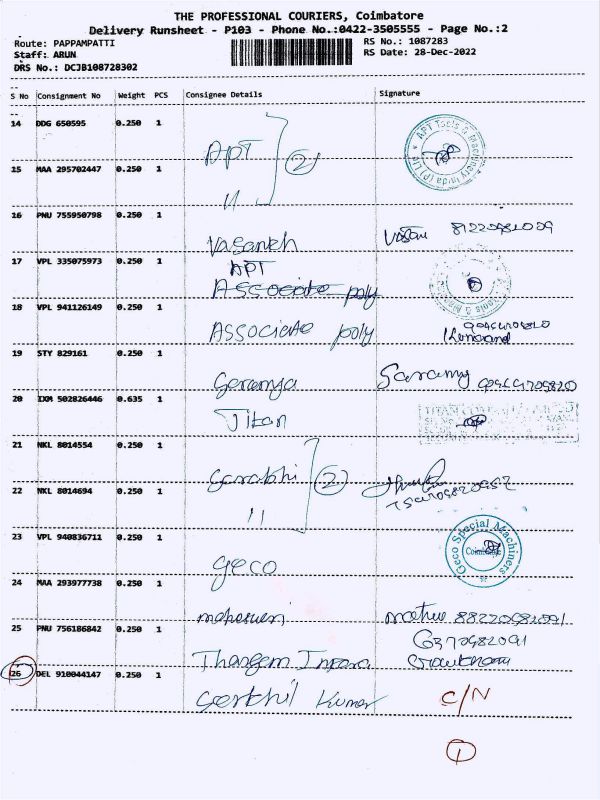 THE PROFESSIONAL COURIERS, Coimbatore
Delivery Runsheet - P103 - Phone No.:0422-3505555 - Page No.:2
Route: PAPPAMPATTI
RS No.: 1087283
Staff: ARUN
RS Date: 28-Dec-2022
DRS No.: DCJB108728302
S No Consignment No Weight PCS Consignee Details Signature
14 DDG 650595 0.250 1
APT
2
APT Tools & Machinery India (P) Ltd
15 MAA 295702447 0.250 1
11
16 PNU 755950798 0.250 1
Vasanth
17 VPL 335075973 0.250 1
APT
Associate poly
18 VPL 941126149 0.250 1
Associate poly
19 STY 829161 0.250 1
Saranya
Saramy
20 IXM 502826446 0.635 1
Titan
21 NKL 8014554 0.250 1
Sarabhi
2
22 NKL 8014694 0.250 1
11
23 VPL 940836711 0.250 1
Geco
Geco Special Machiners
Coimbatore
24 MAA 293977738 0.250 1
25 PNU 756186842 0.250 1
Thangam
26 DEL 910044147 0.250 1
Kumar
C/N
1